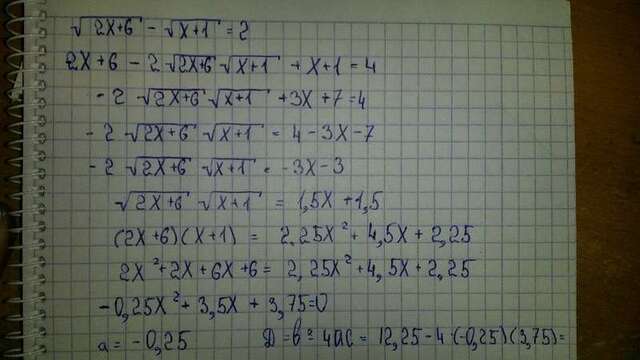 √2x+6 - √x+1 = 2
2x+6 - 2 √2x+6 √x+1 + x+1 = 4
- 2 √2x+6 √x+1 + 3x + 7 = 4
- 2 √2x+6 √x+1 = 4 - 3x - 7
- 2 √2x+6 √x+1 = -3x - 3
√2x+6 √x+1 = 1,5x + 1,5
(2x+6)(x+1) = 2,25x² + 4,5x + 2,25
2x² + 2x + 6x + 6 = 2,25x² + 4,5x + 2,25
-0,25x² + 3,5x + 3,75 = 0
a = -0,25 D = b² - 4ac = 12,25 - 4·(-0,25)(3,75) =